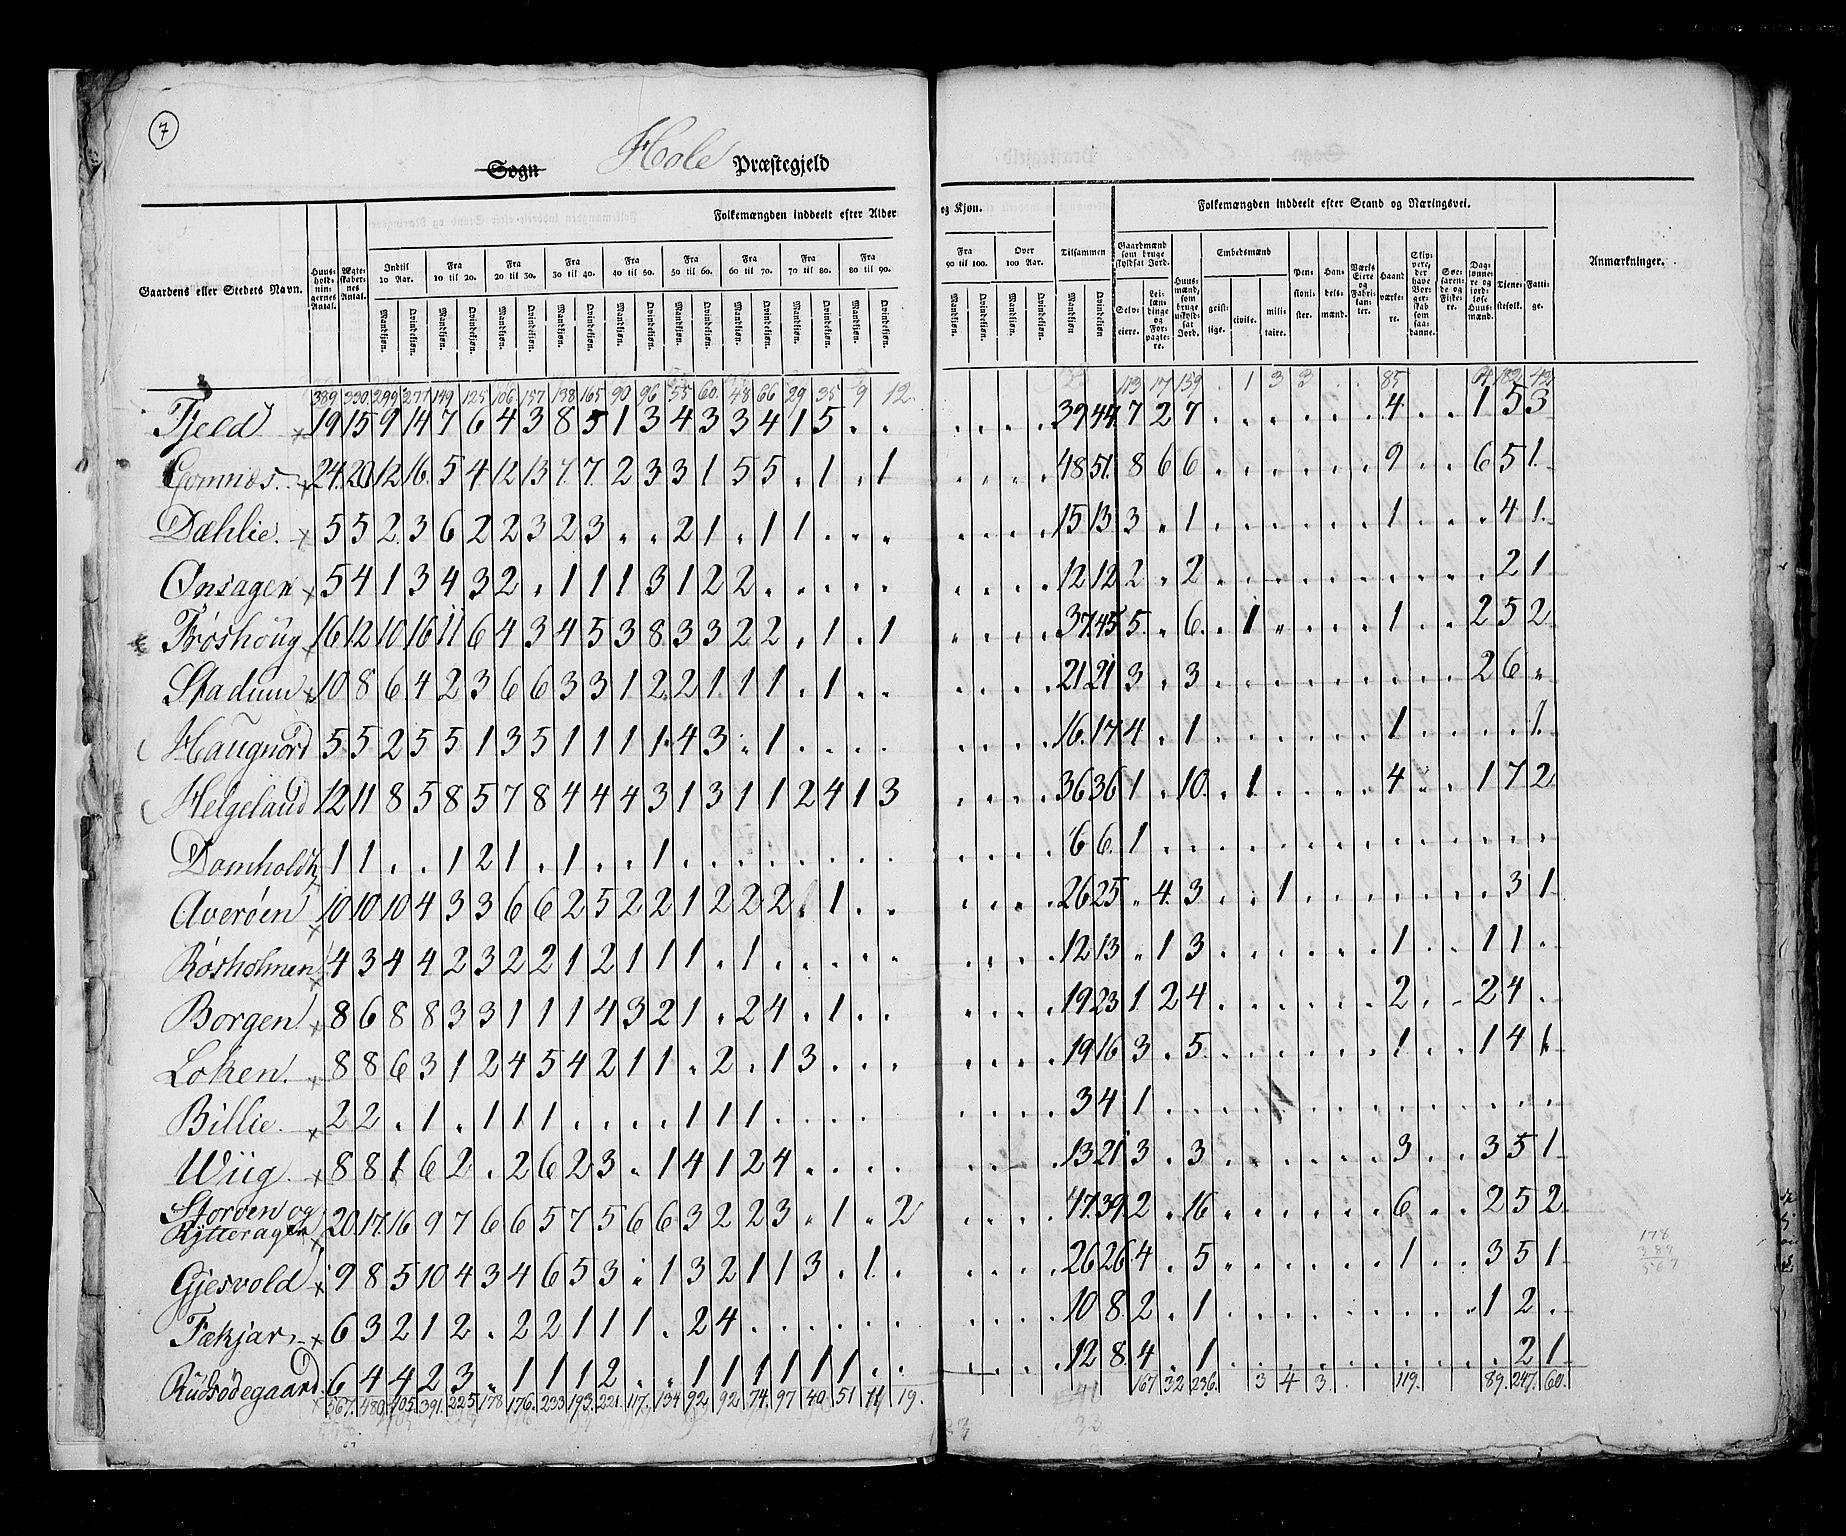 7
Sogn Hole Præstegjeld
Folkemængden inddeelt efter Alder og Kjøn. Folkemængden inddeelt efter Stand og Næringsvei.
Gaardens eller Stedets Navn. Huusholdningernes Antal. Ægteskabernes Antal. Indtil 10 Aar. Fra 10 til 20. Fra 20 til 30. Fra 30 til 40. Fra 40 til 50. Fra 50 til 60. Fra 60 til 70. Fra 70 til 80. Fra 80 til 90. Fra 90 til 100. Over 100 Aar. Tilsammen Gaardmænd som bruge skyldsat Jord. Huusmænd, som bruge uskyldsat Jord. Embedsmænd Pensionister. Handelsmænd. Værks Eiere og Fabrikanter. Haandværkere. Skippere, der have Borgerskab som saadanne. Søefarende og Fiskere. Dagslønnere og jordløse Huusmænd. Tjenestefolk. Fattige. Anmærkninger.
Mandkjøn. Qvindekjøn. Mandkjøn. Qvindekjøn. Mandkjøn. Qvindekjøn. Mandkjøn. Qvindekjøn. Mandkjøn. Qvindekjøn. Mandkjøn. Qvindekjøn. Mandkjøn. Qvindekjøn. Mandkjøn. Qvindekjøn. Mandkjøn. Qvindekjøn. Mandkjøn. Qvindekjøn. Mandkjøn. Qvindekjøn. Mandkjøn Qvindekjøn. Selveiere. Leilændinge og Forpagtere. geistlige. civile. militaire.
389 330 299 277 149 125 106 157 138 165 90 96 55 60 48 66 29 35 9 12 113 17 159 . 1 3 3 . . 85 64 182 42
Fjeld x 19 15 9 14 7 6 4 3 8 5 1 3 4 3 3 4 1 5 . . . . . . 39 44 7 2 7 . . . . . . 4 . . 1 5 3
Gomnæs. x 24. 20 12 16. 5 4 12 13 7. 7. 2 3 3 1 5 5 . 1 . 1 . . . . 48 51. 8 6 6 . . . . . . 9 . . 6 5 1.
Dæhlie. x 5 5 2 3 6 2 2 3 2 3 . . 2 1 . 1 1 . . . . . . . 15 13 3 . 1 . . . . . . 1 . . . 4 1.
Onsagen x 5 4 1 3 4 3 2 . 1 1 1 3 1 2 2 . . . . . . . . . 12 12 2 . 2 . . . . . . . . . . 2 1
Frøshoug x 16 12 10 16 11 6 4 3 4 5 3 8 3 3 2 2 . 1 . 1 . . . . 37 45 5 . 6 . 1 . . . . 1 . . 2 5 2
Stadum x 10 8 6 4 2 3 6 6 3 3 1 2 2 1 1 1 . 1 . . . . . . 21 21 3 . 3 . . . . . . . . . 2 6 .
Haugnord 5 5 2 5 5 1 3 5 1 1 1 1. 4 3 . 1 . . . . . . . . 16. 17 4 . 1 . . . . . . 1 . . . . 1.
Helgeland 12 11 8 5 8 5 7 8 4 4 4 3 1 3 1 1 2 4 1 3 . . . . 36 36 1 . 10. . 1 . . . . 4 . . 1 7 2
Domholdt x 1 1 . . 1 2 1 . 1 . . 1 . . . . . . . . . . . . 6 6. 1 . . . . . . . . . . . . . .
Averøen x 10 10 10 4 3 3 6 6 2 5 2 2 1 2 2 2 . 1 . . . . . . 26 25 . 4 3 . . 1 . . . . . . . 3 1
Røsholmen x 4 3 4 4 2 3 2 2 1 2 1 1 1 . 1 . . . . . . . . . 12 13 . 1 3 . . . . . . 1 . . 1 1 .
Borgen x 8 6 8 8 3 3 1 1 1 4 3 2 1 . 2 4 . 1 . . . . . . 19 23 1 2 4 . . . . . . 2 . . 2 4 .
Loken. x 8 8 6 3 1 2 4 5 4 2 1 1 . 2 . 1 3 . . . . . . . 19 16 3 . 5. . . . . . . 1 . . 1 4 1.
Billie. x 2 2 . 1 . 1 1 1 . . . . 1 1 1 . . . . . . . . . 3 4 1 . . . . . . . . . . . . . .
Wiig. x 8 8 1 6 2 . 2 6 2 3 . 1 4 1 2 4 . . . . . . . . 13 21 3 . 3 . . . . . . 3 . . 3 5 1
Storøen og
Rytteragen x 20. 17. 16 9 7 6 6 5 7 5 6 6 3 2 2 3 . 1 . 2 . . . . 47. 39 2 . 16 . . . . . . 6 . . 2 5 2
Gjesvold x 9 8 5 10 4 3 4 6 5 3 . 1 3 2 1 1 3 . 1. . . . . . 26 26 4 . 5 . . . . . . 1 . . 3 5 1
Fækjar, x 6 3 2 1 2 . 2 2 1 1 1 . 2 4 . . . . . . . . . . 10 8 2 . 1 . . . . . . . . . 1 2 .
Rudsødegaard. x 6 4 4 2 3 . 1 1 1 2 . . 1 1 1 1 1 1 . . 12 8. 4 . 1 . . . . . . . . . . 2 1
567. 480. 405 391. 225 178 176. 233 193. 221. 117. 134 92 92 74. 97 40 51 11 19. 167 32 236. 3 4 3 119. 89. 247. 60.
178
389
567